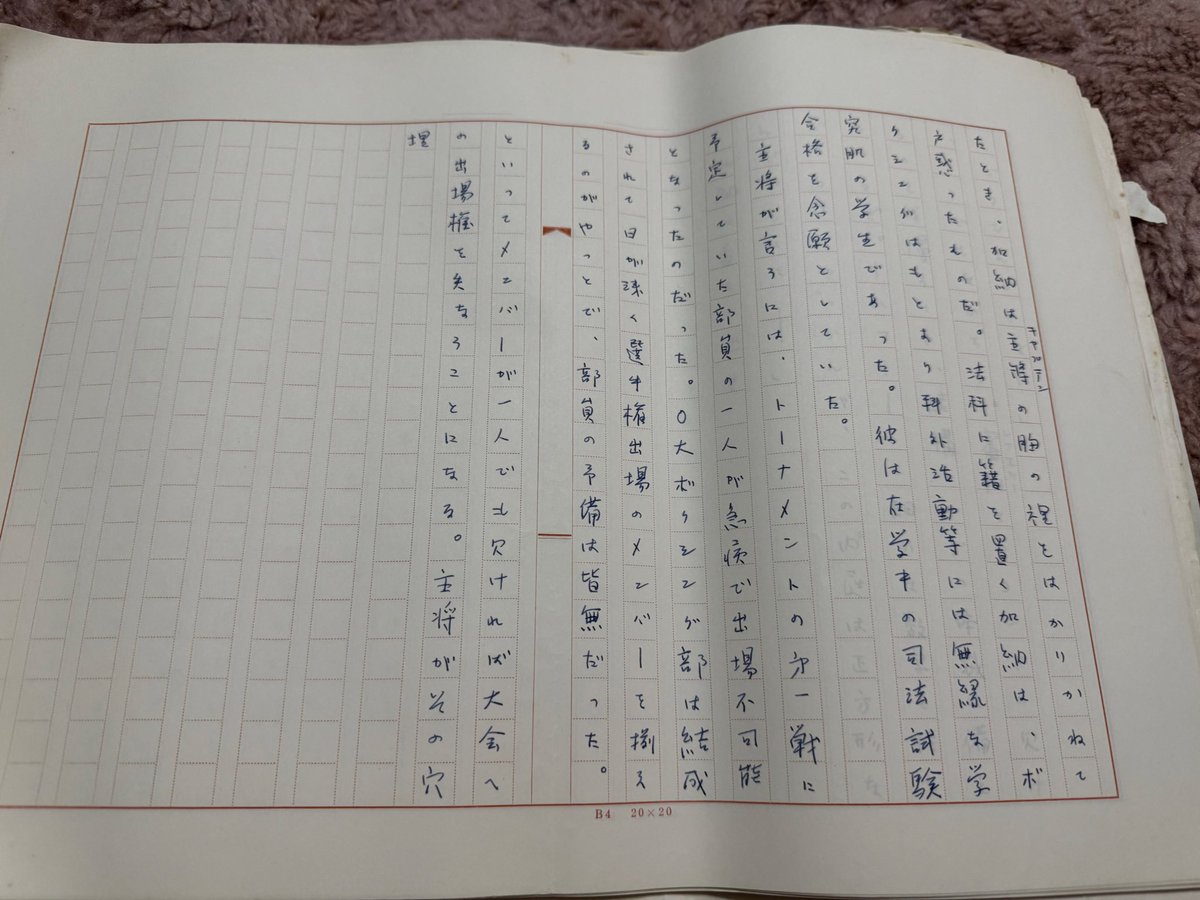 たとき、加納は主将の胸の裡をはかりかねて
キャプテン
戸惑ったものだ。法科に籍を置く加納は、ボ
クシングはもとより科外活動等には無縁な学
究肌の学生であった。彼は在学中の司法試験
合格を念願としていた。
主将が言うには、トーナメントの㐧一戦に
予定していた部員の一人が急病で出場不可能
となったのだった。O大ボクシング部は結成
されて日が浅く選手権出場のメンバーを揃え
るのがやっとで、部員の予備は皆無だった。
といってメンバーが一人でも欠ければ大会へ
の出場権を失なうことになる。主将がその穴
埋
B4 20×20